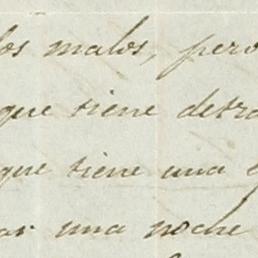 los malos, pero
que tiene detra
que tiene una
una noche